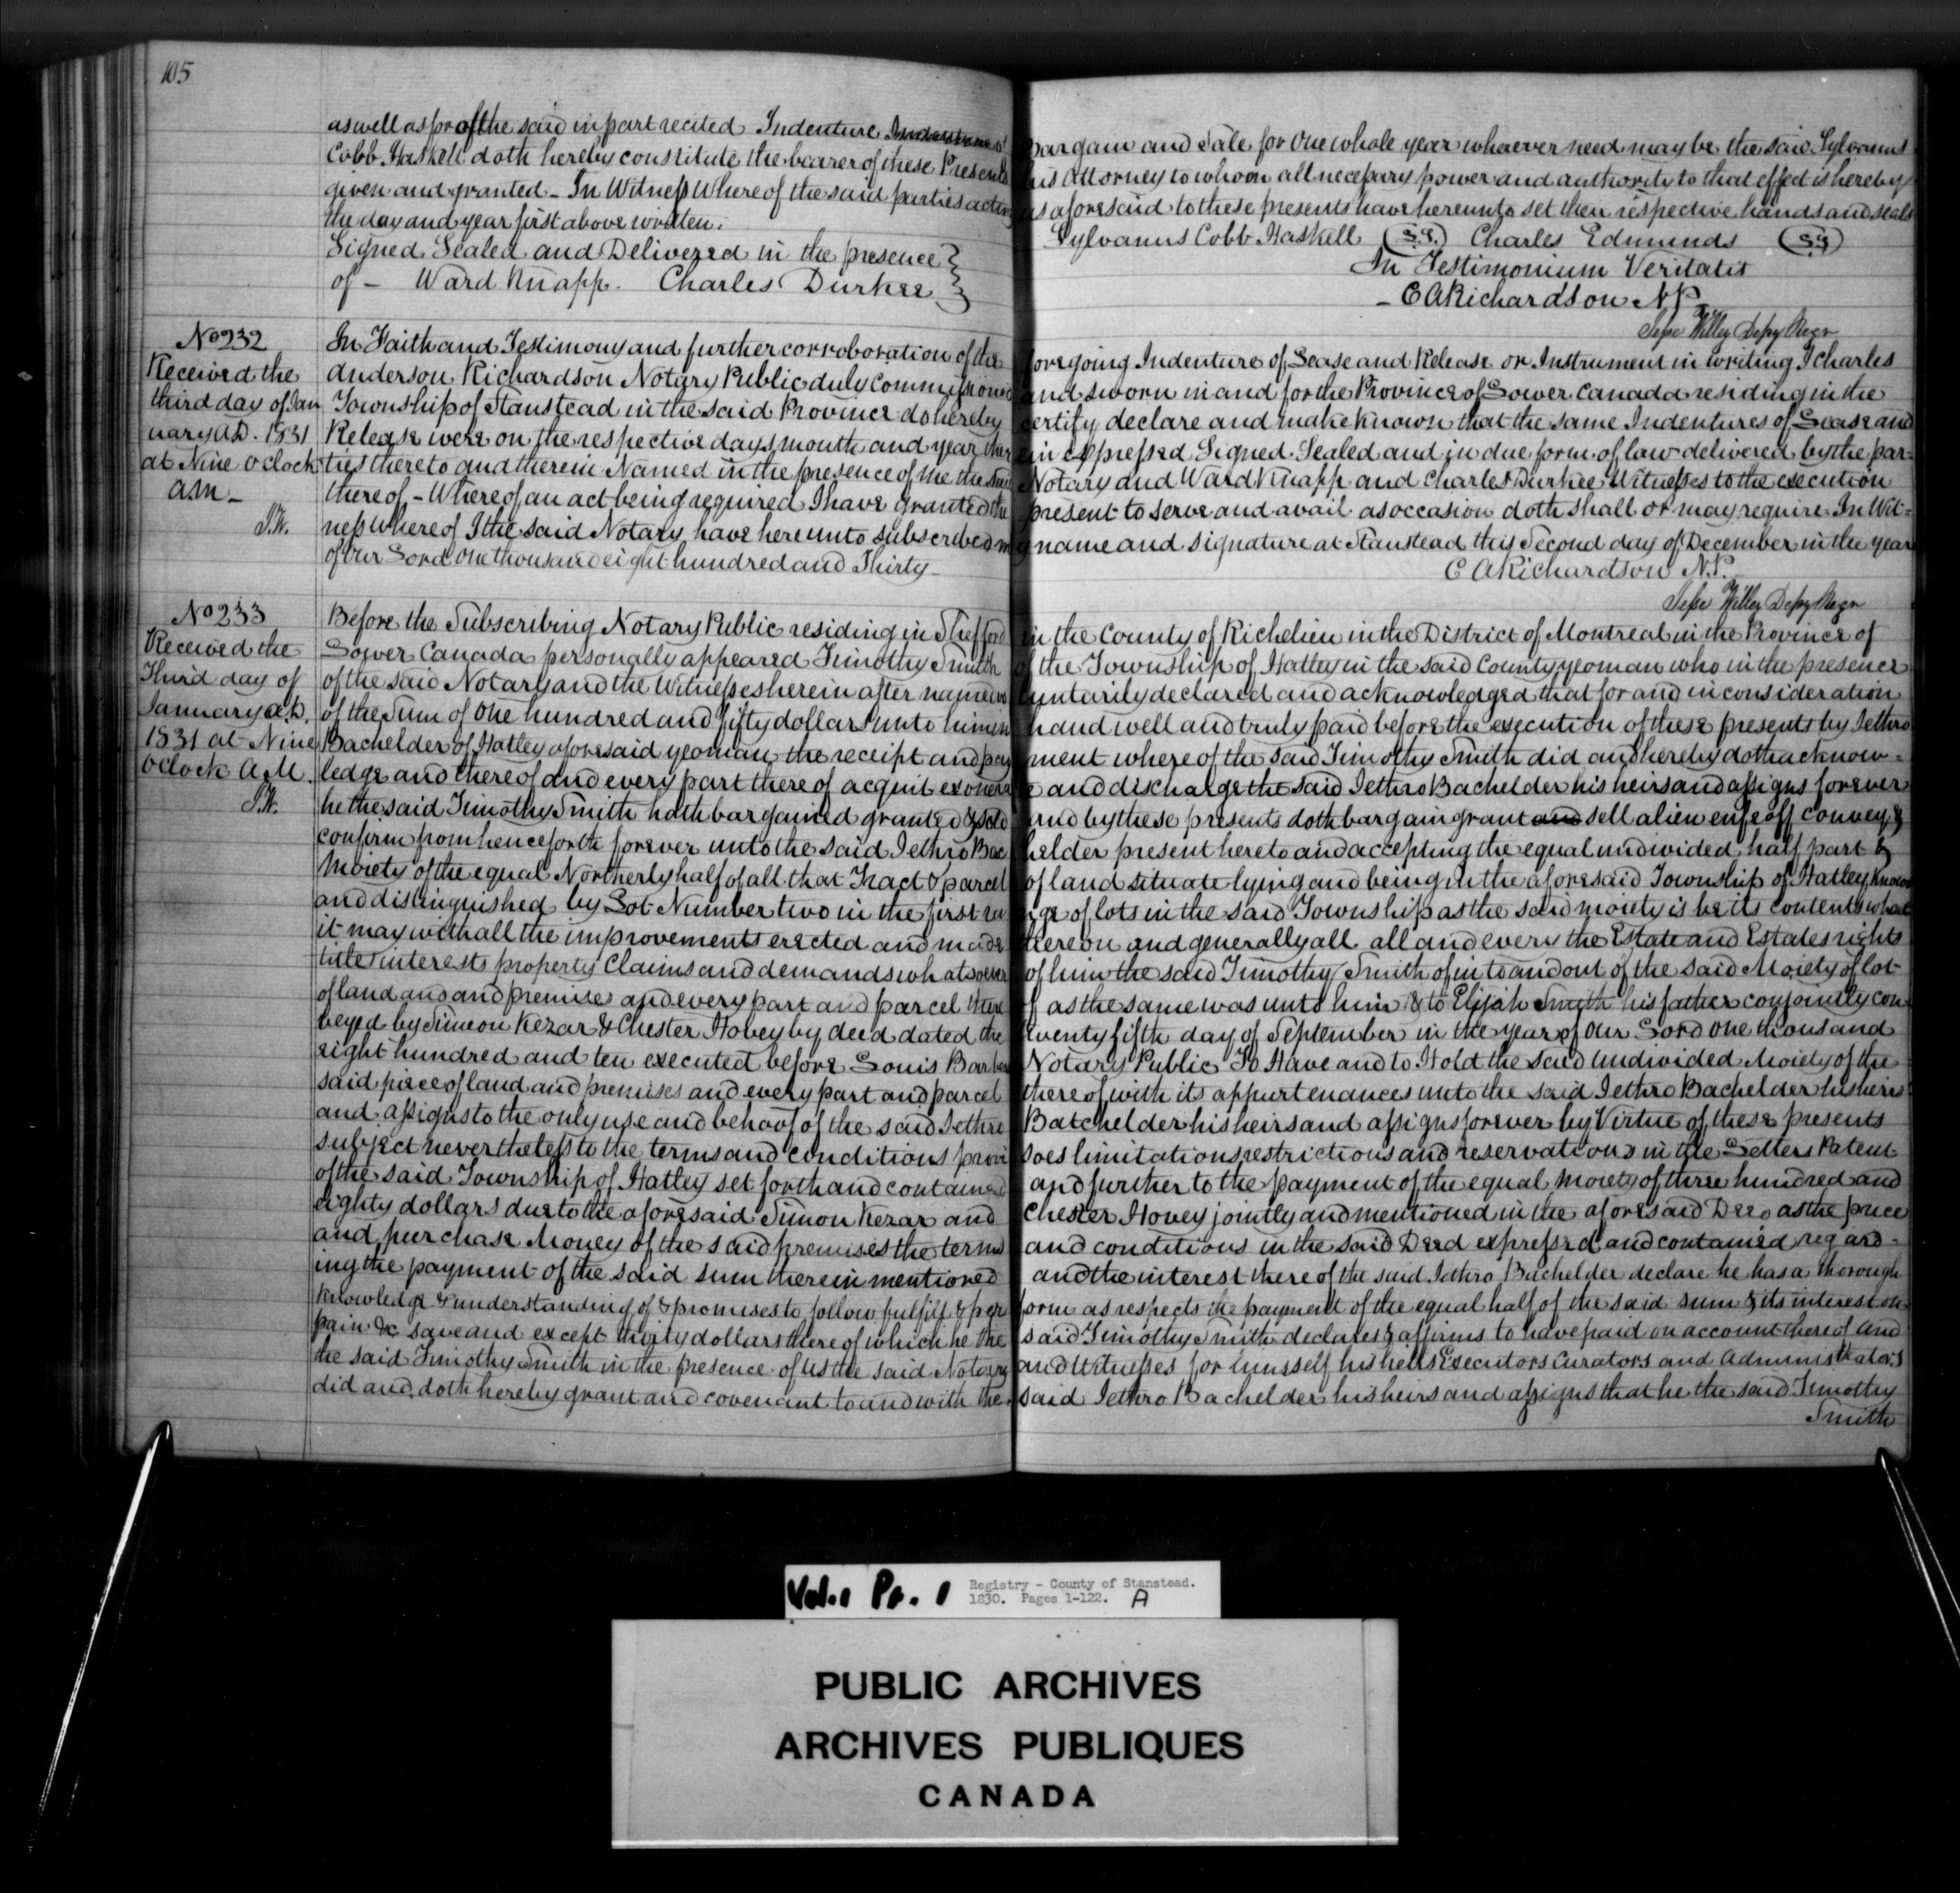 105
as well as for of the said in part recited Indenture Bargain and Sale for One whole year wherever need may be the said Sylvanus
Cobb Haskell doth hereby constitute the bearer of these Presents his Attorney to whom all necessary power and authority to that effect is hereby
given and granted - In Witness Whereof the said parties acting as aforesaid to these presents have hereunto set their respective hands and seals
the day and year first above written. Sylvanus Cobb Haskell (S.S.) Charles Edmunds (S.S)
Signed Sealed and Delivered in the presence In Testimonium Veritatis
of - Ward Knapp. Charles Durkee - C A Richardson N.P.
Depy Regr
No 232
Received the
third day of Jan
uary A.D. 1831
at Nine o clock
am -
In Faith and Testimony and further corroboration of the foregoing Indenture of Lease and Release or Instrument in writing I Charles
Anderson Richardson Notary Public duly Commissioned and sworn in and for the Province of Lower Canada residing in the
Township of Stanstead in the said Province do hereby certify declare and make known that the same Indentures of Lease and
Release were on the respective days month and year therein expressed Signed Sealed and in due form of law delivered by the par=
ties thereto and therein Named in the presence of me the said Notary and Ward Knapp and Charles Durkee Witnesses to the execution
thereof - Whereof an act being required I have granted the present to serve and avail as occasion doth shall or may require. In Wit=
ness whereof I the said Notary have hereunto subscribed my name and signature at Stanstead this Second day of December in the year
of our Lord one thousand eight hundred and Thirty - C A Richardson N.P.
Depy Regr
No 233
Received the
Third day of
January A.D.
1831 at Nine
oclock A.M.
Before the Subscribing Notary Public residing in Shefford in the County of Richelieu in the District of Montreal in the Province of
Lower Canada personally appeared Timothy Smith of the Township of Hatley in the said County yeoman who in the presence
of the said Notary and the Witnesses herein after named voluntarily declared and acknowledged that for and in consideration
of the Sum of One hundred and fifty dollars unto him in hand well and truly paid before the execution of these presents by Jethro
Bachelder of Hatley aforesaid yeoman, the receipt and payment whereof the said Timothy Smith did and hereby doth acknow=
ledge and thereof and every part thereof acquit exonerate and discharge the said Jethro Bachelder his heirs and assigns forever
he the said Timothy Smith hath bargained granted & sold and by these presents doth bargain grant and sell alien enfeoff convey &
confirm from henceforth forever unto the said Jethro Bachelder present hereto and accepting the equal undivided half part &
Moiety of the equal Northerly half of all that Tract & parcel of land situate lying and being in the aforesaid Township of Hatley known
and distinguished by Lot Number two in the first range of lots in the said Township as the said moiety is be its contents what
it may with all the improvements erected and made thereon and generally all all and every the Estate and Estates rights
title interests property Claims and demands whatsoever of him the said Timothy Smith of in to and out of the said Moiety of lot
of land and and premises and every part and parcel thereof as the same was unto him & to Elijah Smith his father conjointly con
veyed by Simeon Kezar & Chester Hovey by deed dated the twenty fifth day of September in the year of Our Lord One thousand
eight hundred and ten executed before Louis Barbeau Notary Public To Have and to Hold the said undivided Moiety of the
said piece of land and premises and every part and parcel thereof with its appurtenances unto the said Jethro Bachelder his heirs
and assigns to the only use and behoof of the said Jethro Batchelder his heirs and assigns forever by Virtue of these presents
subject nevertheless to the terms and conditions provisoes limitations restrictions and reservations in the Letters Patent
of the said Township of Hatley set forth and contained and further to the payment of the equal moiety of three hundred and
eighty dollars due to the aforesaid Simon Kezar and Chester Hovey jointly and mentioned in the aforesaid Deed as the price
and purchase Money of the said premises the terms and conditions in the said Deed expressed and contained regard-
ing the payment of the said sum therein mentioned and the interest thereof the said Jethro Bachelder declare he has a thorough
Knowledge & understanding of & promises to follow fulfill & perform as respects the payment of the equal half of the said sum & its interest on
pain &c save and except thirty dollars thereof which he the said Timothy Smith declares & affirms to have paid on account thereof And
the said Timothy Smith in the presence of us the said Notary and Witnesses for himself his heirs Executors Curators and Administrators
did and doth hereby grant and covenant to and with the said Jethro Bachelder his heirs and assigns that he the said Timothy
Smith
Vol.1 Pt. 1 Registry - County of Stanstead.
1830. Pages 1-122. A
PUBLIC ARCHIVES
ARCHIVES PUBLIQUES
CANADA